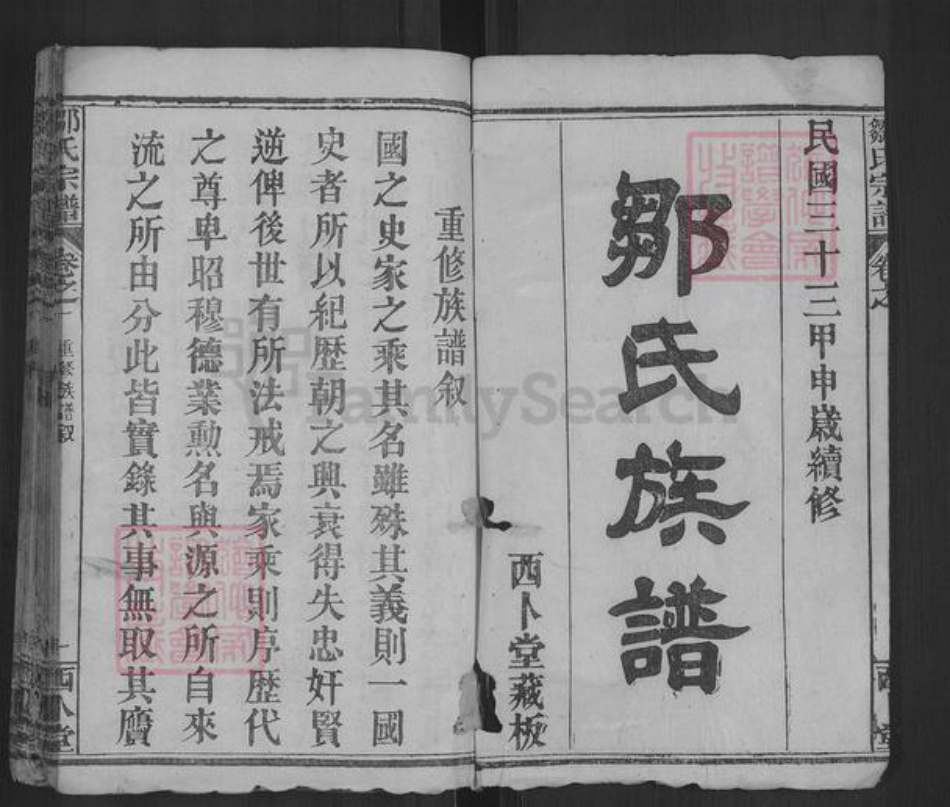 民國三十三甲申歲續修
鄒氏族譜
西卜堂藏板
重修族譜叙
國之史家之乘其名雖殊其義則一國
史者所以紀歷朝之興衰得失忠奸賢
逆俾後世有所法戒焉家乘則序歷代
之尊卑昭穆德業勲名與源之所自來
流之所由分此皆實錄其事無取其贗
鄒氏宗譜
卷之一
重修族譜叙
一
西卜堂
鄒氏宗譜
卷之
FamilySearch